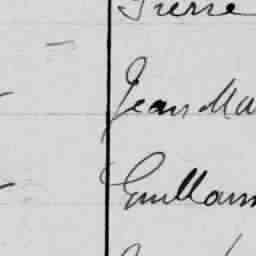 Pierre
Jean Ma
Guillaum